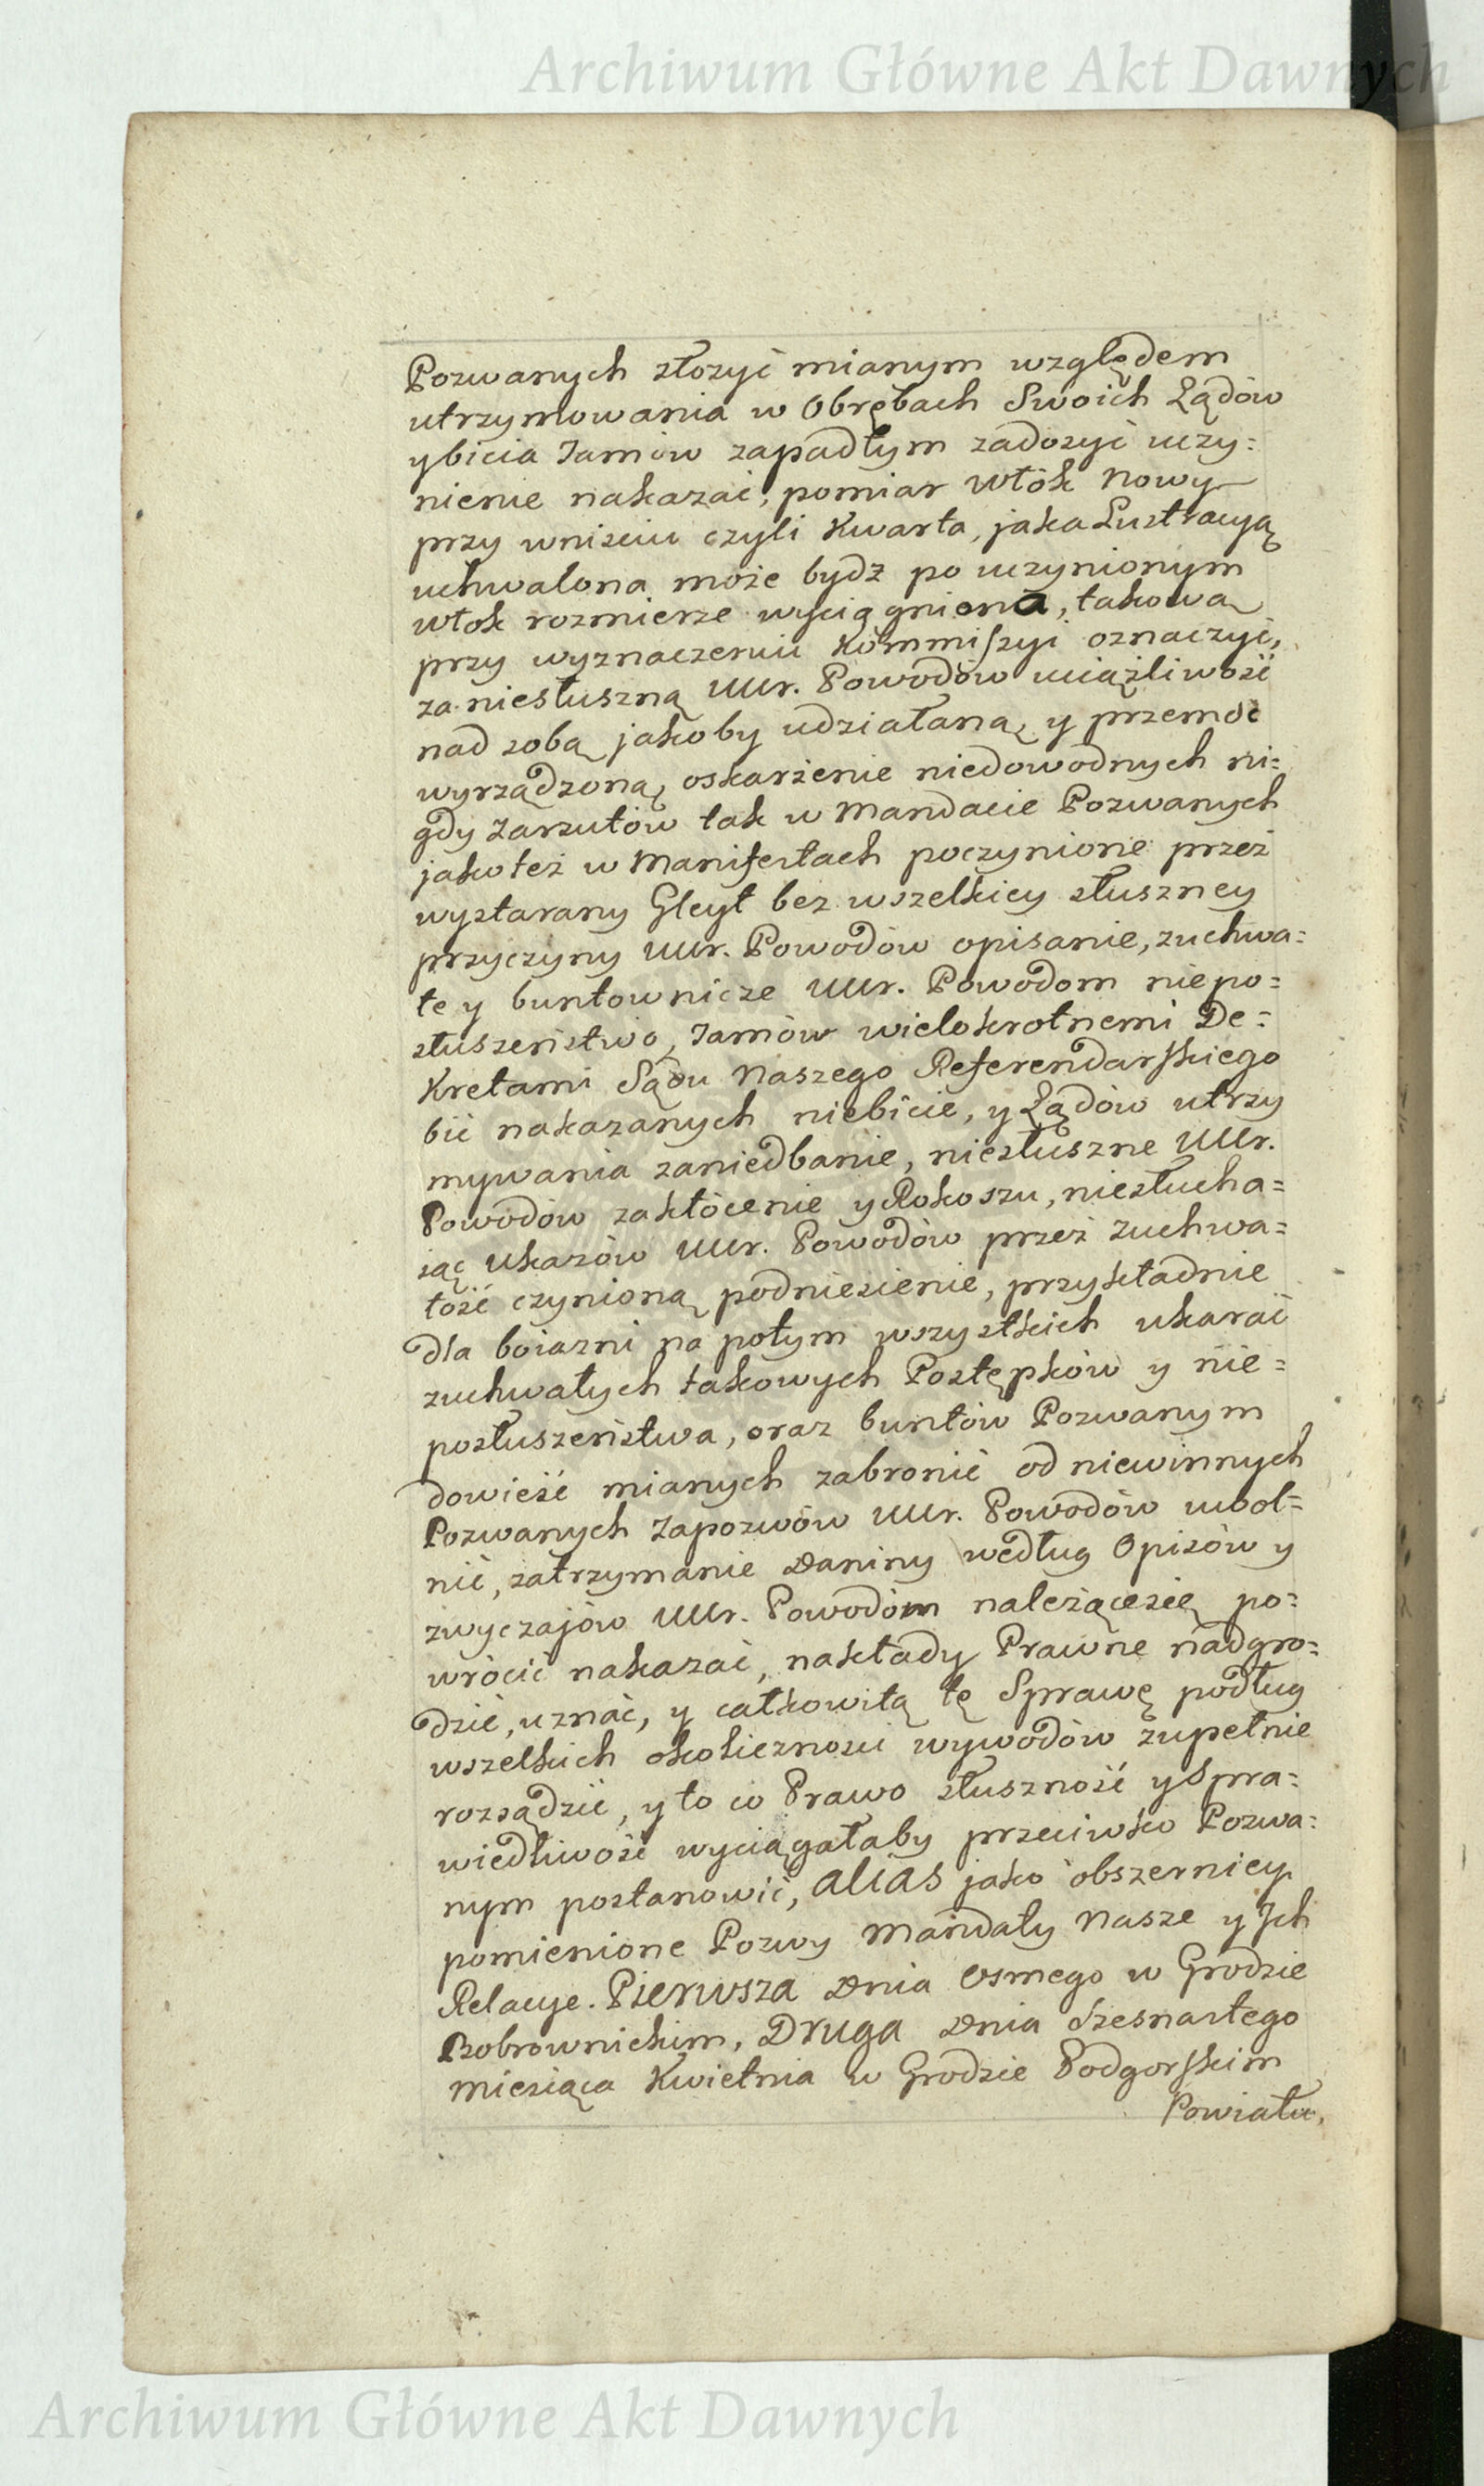 Archiwum Główne Akt Dawnych
Pozwanych złozyć mianym względem
utrzymowania w Obrębach Swoich Lądów
y bicia Tamów zapadłym zadosyć uczy=
nienie nakazać, pomiar Włók Nowy
przy wniściu czyli Kwarta, jaka Lustracyą
uchwalona może bydz po uczynionym
włok rozmierze wyciągniona, takowa
przy wyznaczeniu Kommiſzyi oznaczyć,
za niesłuszną UUr. Powodów uciążliwość
nad sobą jakoby udziałaną y przemoc
wyrządzoną, oskarżenie niedowodnych ni=
gdy Zarzutów tak w Mandacie Pozwanych
jako też w Manifestach poczynione przez
wystarany Gleyt bez wszelkiey słuszney
przyczyny UUr. Powodów opisanie, zuchwa=
łe y buntownicze UUr. Powodom niepo=
słuszeństwo, Tamów wielokrotnemi De=
Kretami Sądu Naszego Referendarſkiego
bić nakazanych niebicie, y Lądów utrzy
mywania zaniedbanie, niesłuszne UUr.
Powodów zakłócenie y Rokoszu, niesłucha=
iąc Ukazów UUr. Powodów przez zuchwa=
łość czynioną podniesienie, przykładnie
dla boiazni na potym wszystkich ukarać
zuchwałych takowych Postępków y nie=
posłuszeństwa, oraz buntów Pozwanym
dowieść mianych zabronić od niewinnych
Pozwanych Zapozwów UUr. Powodów uwol=
nić, zatrzymanie Daniny według Opisów y
zwyczajów UUr. Powodom należącesię po=
wrócić nakazać, nakłady Prawne nadgro=
dzić, uznać, y całkowitą tę Sprawę podług
wszelkich okoliczności wywodów zupełnie
rozsądzić, y to co Prawo słuszność y Spra=
wiedliwość wyciągałaby przeciwko Pozwa=
nym postanowić, alias jako obszerniey
pomienione Pozwy Mandaty Nasze y Ich
Relacye. Pierwsza Dnia Osmego w Grodzie
Bobrownickim, Druga Dnia Szesnastego
Miesiąca Kwietnia w Grodzie Podgorſkim
Powiatu,
Archiwum Główne Akt Dawnych